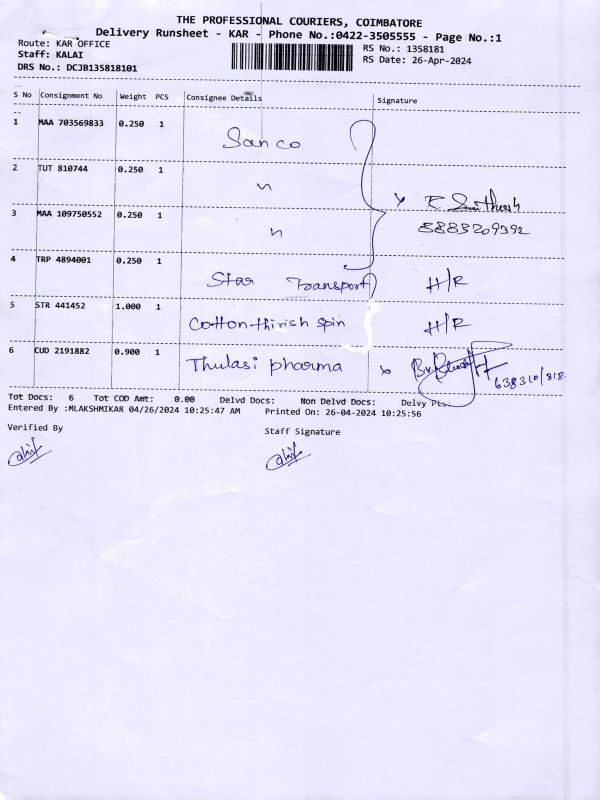 THE PROFESSIONAL COURIERS, COIMBATORE
Delivery Runsheet - KAR - Phone No.:0422-3505555 - Page No.:1
Route: KAR OFFICE
Staff: KALAI
DRS No.: DCJB135818101
RS No.: 1358181
RS Date: 26-Apr-2024
S No Consignment No Weight PCS Consignee Details Signature
1 MAA 703569833 0.250 1 Sanco
2 TUT 810744 0.250 1 "
3 MAA 109750552 0.250 1 "
8883209392
4 TRP 4894001 0.250 1 Star Transport H/R
5 STR 441452 1.000 1 Cotton thirish spin H/R
6 CUD 2191882 0.900 1 Thulasi pharma
638310/818.
Tot Docs: 6 Tot COD Amt: 0.00 Delvd Docs: Non Delvd Docs: Delvy Pts:
Entered By :MLAKSHMIKAR 04/26/2024 10:25:47 AM Printed On: 26-04-2024 10:25:56
Verified By
Staff Signature